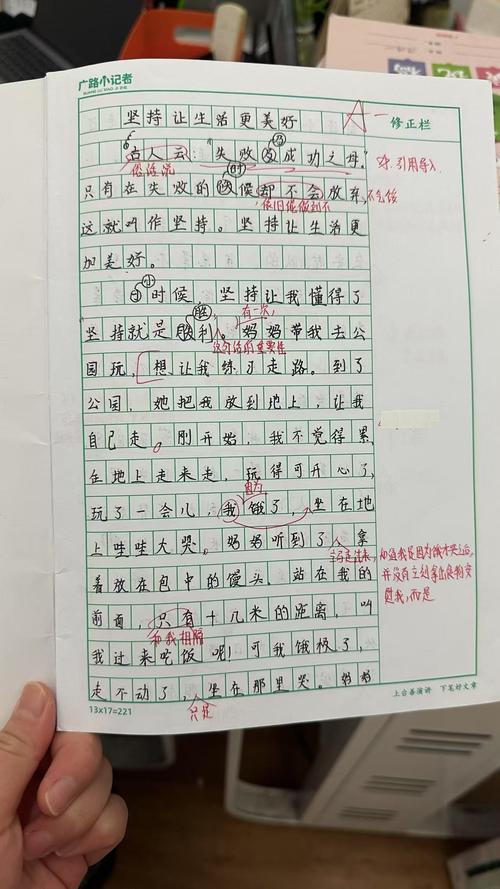 广路小记者
GUANG LU XIAO JI ZHE
坚持让生活更美好
修正栏
古人云:"失败是成功之母。"
乃
俗话说
引用导入
只有在失败的时候都不会放弃,
时
依旧能做到不
不气馁
这就叫作坚持。坚持让生活更
加美好。
小时候,坚持让我懂得了
小
坚持就是胜利。妈妈带我去公
胜
有一次,
这句话的重要性
园玩,想让我练习走路。到了
公园,她把我放到地上,让我
自己走。刚开始,我不觉得累,
在地上走来走,玩得可开心了,
玩了一会儿,我饿了,坐在地
因为
上哇哇大哭。妈妈听到了,拿
立马走过来,知道我是因为饿才哭之后,
并没有立刻拿出食物安
慰我,而是
着放在包中的馒头。站在我的
前面,只有十几米的距离,叫
和我相隔
我过来吃饭呢!可我饿极了,
走不动了,坐在那里哭。妈妈
只是
13×17=221
上台善演讲 下笔好文章